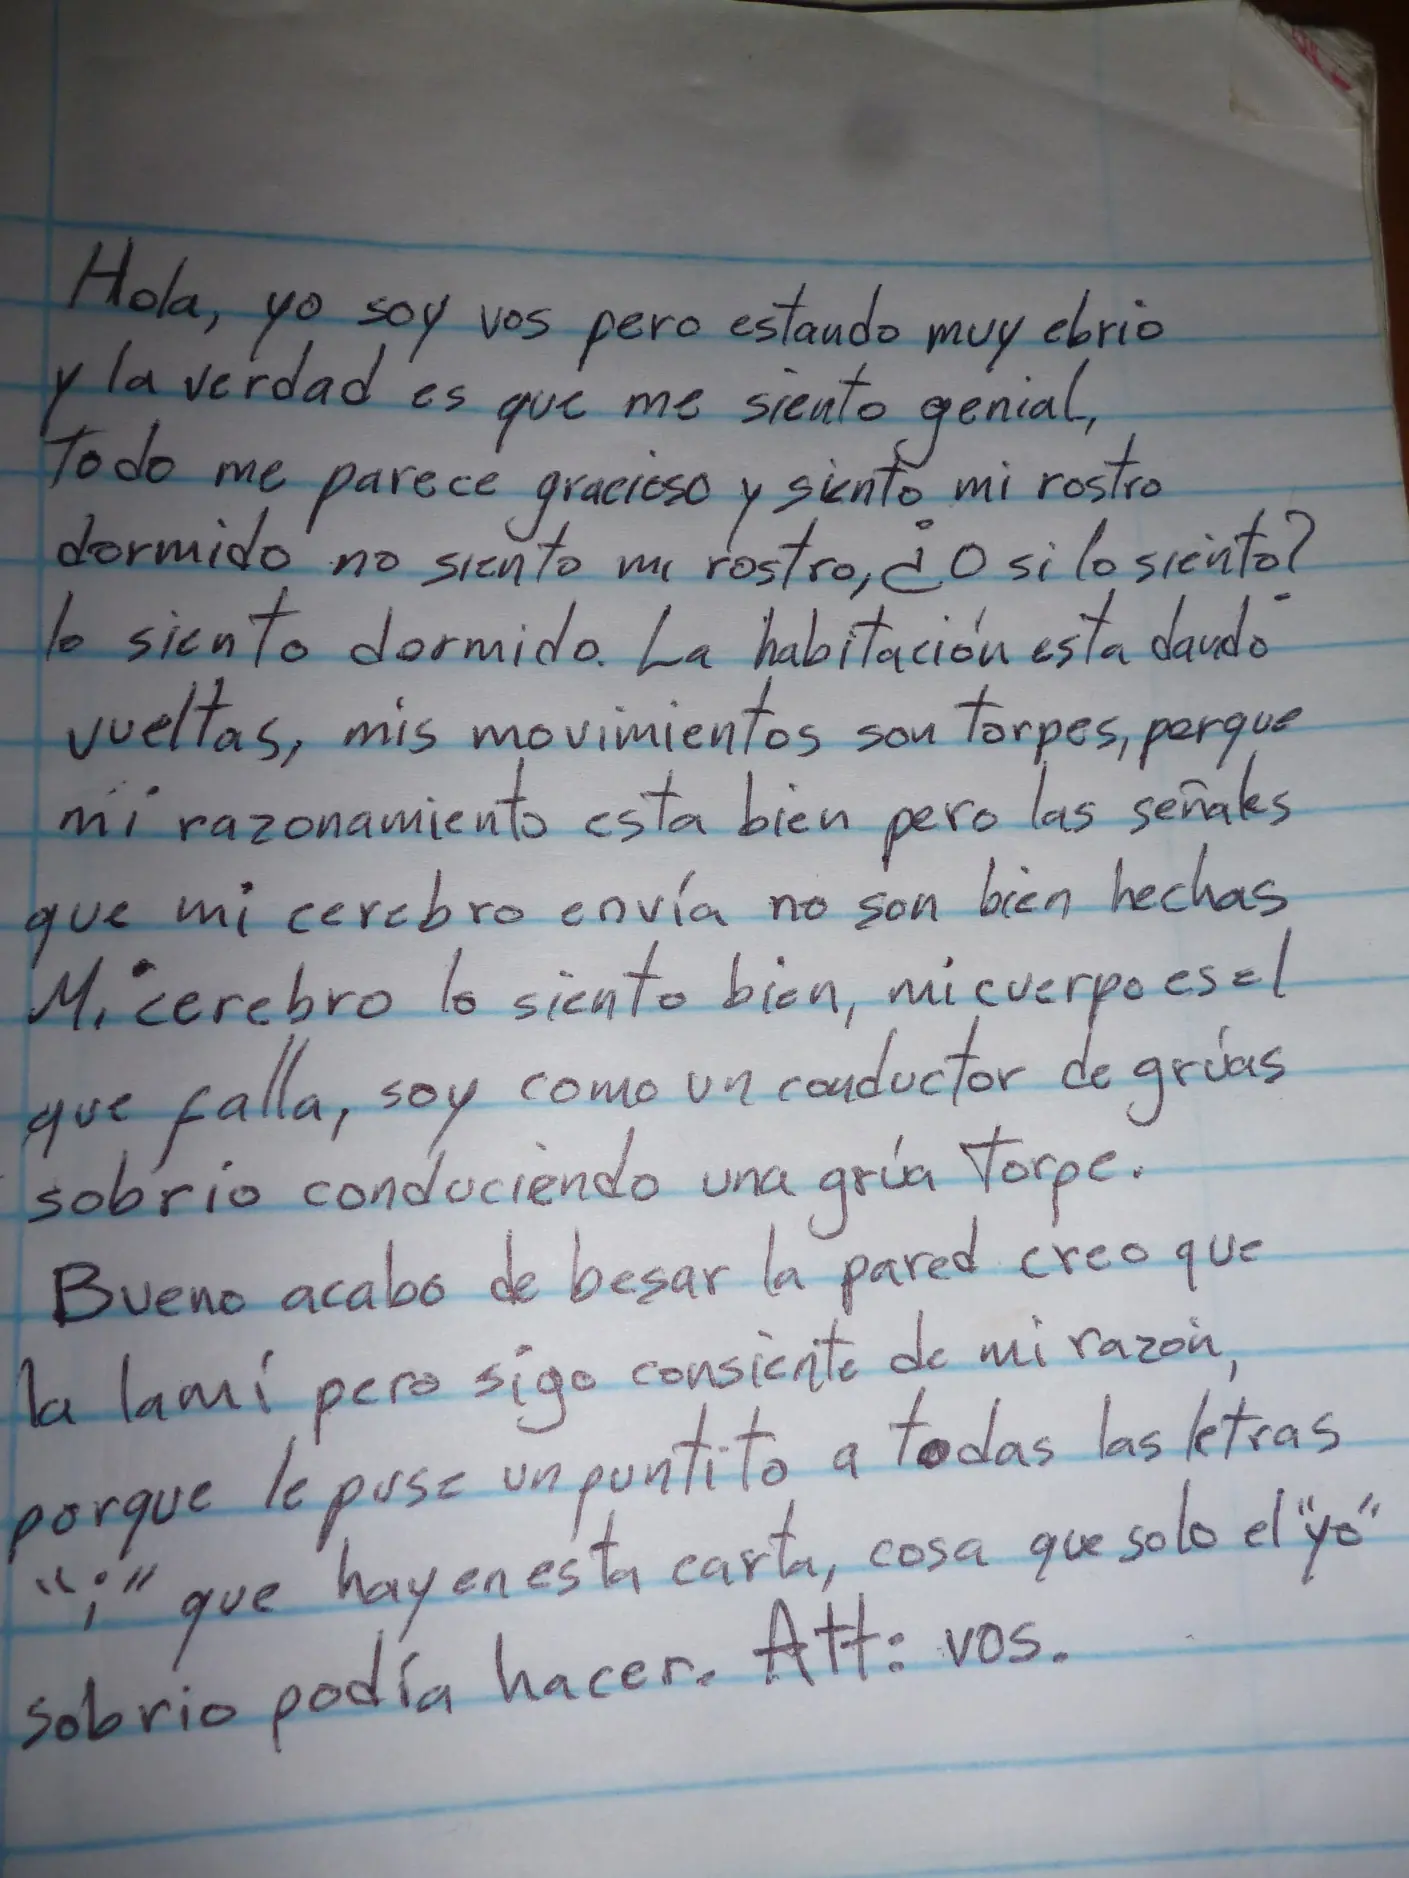 Hola, yo soy vos pero estando muy ebrio
y la verdad es que me siento genial,
Todo me parece gracioso y siento mi rostro
dormido no siento mi rostro, ¿O si lo siento?
lo siento dormido. La habitación esta dando
vueltas, mis movimientos son torpes, porque
mi razonamiento esta bien pero las señales
que mi cerebro envía no son bien hechas
Mi cerebro lo siento bien, mi cuerpo es el
que falla, soy como un conductor de grúas
sobrio conduciendo una grúa torpe.
Bueno acabo de besar la pared creo que
la lamí pero sigo consiente de mi razón,
porque le puse un puntito a todas las letras
"i" que hay en esta carta, cosa que solo el "yo"
sobrio podía hacer. Att: vos.